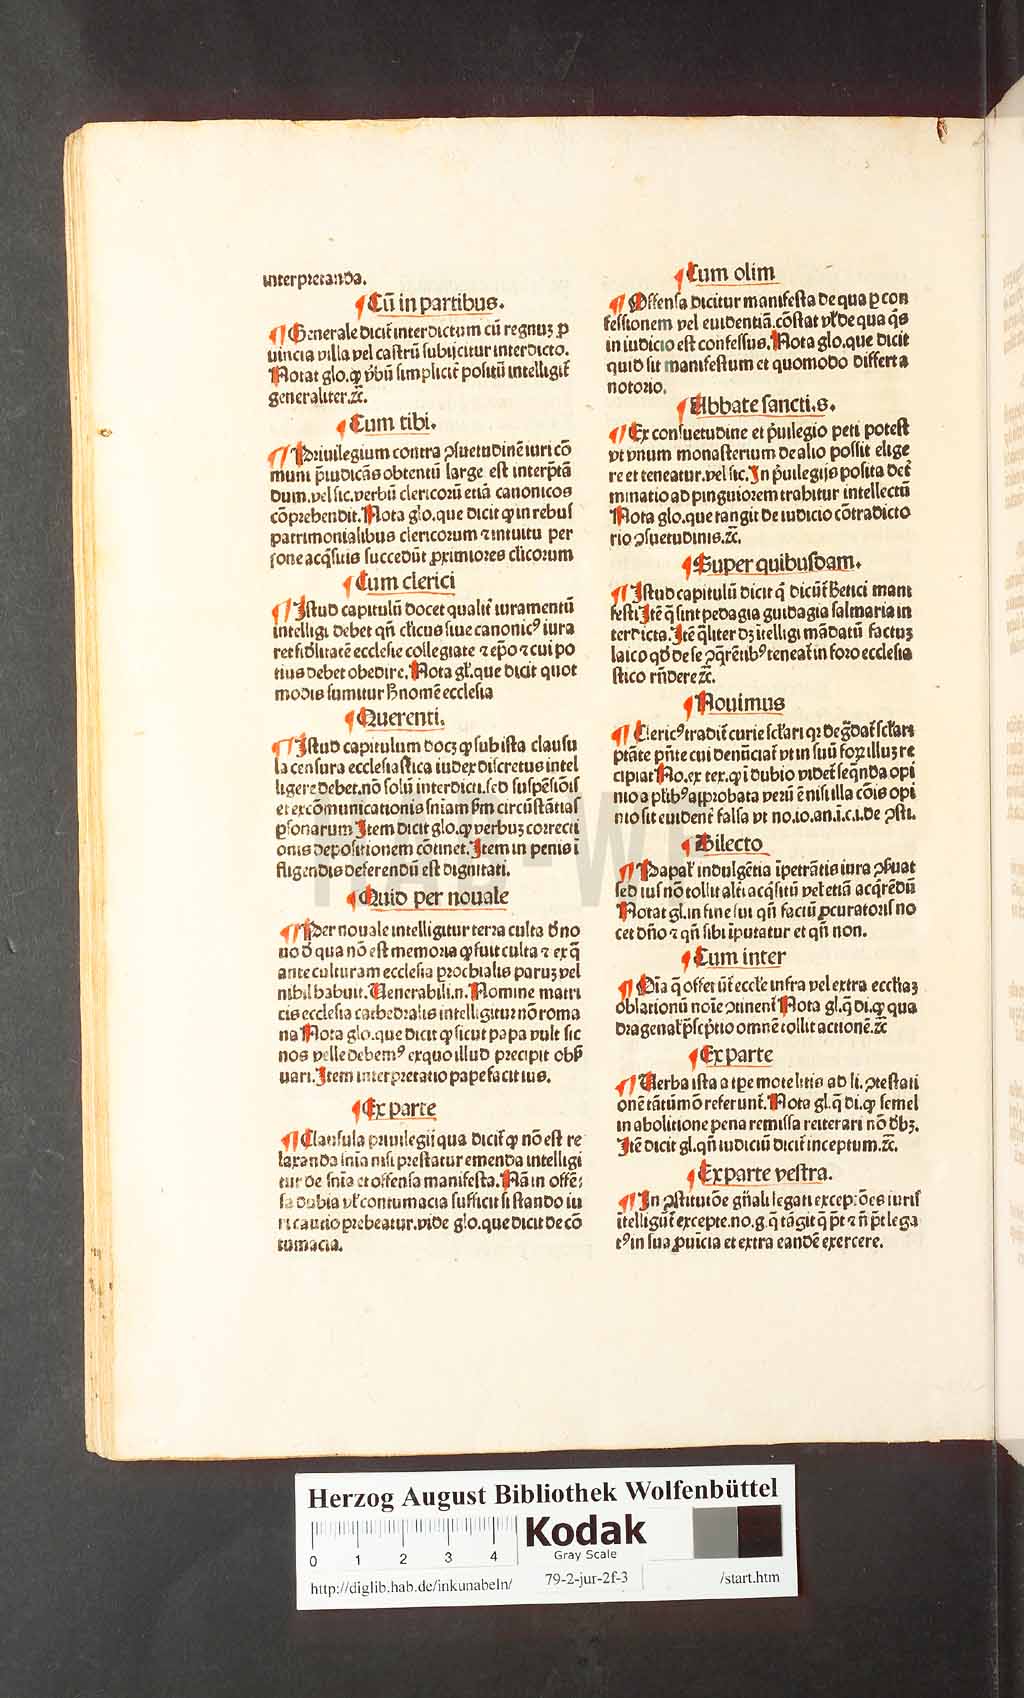 interpretanda.
¶ Cū in partibus.
¶ Generale dicit̃ interdictum cū regnuʒ ꝓ
uincia villa vel castrū subijcitur interdicto.
Notat glo. ꝙ v̓bū simplicit̃ positū intelligit̃
generaliter. ⁊c̃.
¶ Cum tibi.
¶ Priuilegium contra ꝯsuetudinē iuri cō
muni p̄iudicās obtentū large est interp̄tā
dum. vel sic. verbū clericorū etiā canonicos
cōprehendit. Nota glo. que dicit ꝙ in rebus
patrimonialibus clericorum ⁊ intuitu per
sone acq̄sitis succedūt ꝓximiores clicorum
¶ Cum clerici
¶ Istud capitulū docet qualit̃ iuramentū
intelligi debet qn̄ cl̓icus siue canonicꝰ iura
ret fidl̓itatē ecclesie collegiate ⁊ ep̄o ⁊ cui po
tius debet obedire. Nota gl̓. que dicit quot
modis sumitur h̄ nomē ecclesia
¶ Querenti.
¶ Istud capitulum docʒ ꝙ sub ista clausu
la censura ecclesiastica iudex discretus intel
ligere debet. nō solū interdicti. sed suspēsiōis
et excōmunicationis sn̄iam s̄m circūstātias
ꝑsonarum Item dicit glo. ꝙ verbuʒ correcti
onis depositionem cōtinet. Item in penis ī
fligendis deferendū est dignitati.
¶ Quid per nouale
¶ Per nouale intelligitur terra culta d̓ no
uo d̓ qua nō est memoria ꝙ fuit culta ⁊ ex q̄
ante culturam ecclesia ꝑrochialis paruʒ vel
nihil habuit. Uenerabili. n. Nomine matri
cis ecclesia cathedralis intelligitur nō roma
na Nota glo. que dicit ꝙ sicut papa vult sic
nos velle debemꝰ ex quo illud precipit obs̓
uari. Item interpretatio pape facit ius.
¶ Ex parte
¶ Clausula priuilegij qua dicit̃ ꝙ nō est re
laxanda sn̄ia nisi prestatur emenda intelligi
tur de sn̄ia et offensa manifesta. Nā in offē:
sa dubia vl̓ contumacia sufficit si stando iu
ri cautio prebeatur. vide glo. que dicit de cō
tumacia.
¶ Cum olim
¶ Offensa dicitur manifesta de qua ꝑ con
fessionem vel euidentiā. cōstat vl̓ de qua q̄s
in iudicio est confessus. Nota glo. que dicit
quid sit manifestum et quomodo differt a
notorio.
¶ Abbate sancti. s.
¶ Ex consuetudine et p̄uilegio peti potest
vt vnum monasterium de alio possit elige
re et teneatur. vel sic. In p̄uilegijs posita det̓
minatio ad pinguiorem trahitur intellectū
Nota glo. que tangit de iudicio cōtradicto
rio ꝯsuetudinis. ⁊c̃.
¶ Super quibusdam.
¶ Istud capitulū dicit q̄ dicūt̃ h̓etici mani
festi Itē q̄ sint pedagia guidagia salmaria in
terdicta. Itē q̄liter dʒ ītelligi mādatū factuʒ
laico qd̓ de se ꝯq̄rētibꝰ teneat̃ in foro ecclesia
stico rn̄dere ⁊c̃.
¶ Nouimus
¶ Clericꝰ tradit̃ curie scl̓ari qꝛ deg̃dat̃ scl̓aris
ptāte pn̄te cui denūciat̃ vt in suū forʒ illuʒ re
cipiat No. ex tex. ꝙ ī dubio videt̃ seq̄nda opi
nio a pl̓ibꝰ approbata verū ē nisi illa cōis opi
nio sit euident̓ falsa vt no. io. an. ī. c. i. de ꝯsti.
¶ Dilecto
¶ Papal̓ indulgētia īpetrātis iura ꝯs̓uat
sed ius nō tollit alt̓i acq̄sitū vel etiā acq̄rēdū
Notat gl. in fine sui qn̄ faciū ꝓcuratoris no
cet dn̄o ⁊ qn̄ sibi īputatur et qn̄ non.
¶ Cum inter
¶ Oīa q̄ offer̄ūt̃ eccl̓e infra vel extra eccl̓iaʒ
oblationū noīe ꝯtinent̃ Nota gl. q̄ di. ꝙ qua
dragenal̓ p̄scp̄tio omnē tollit actionē. ⁊c̃
¶ Ex parte
¶ Uerba ista a tpe mote litis ad li. ꝯtestati
onē tātūmō referunt̃. Nota gl. q̄ di. ꝙ semel
in abolitione pena remissa reiterari nō d̓bʒ.
Itē dicit gl. qn̄ iudiciū dicit̃ inceptum. ⁊c̃.
¶ Ex parte vestra.
¶ In ꝯstitutōe gn̄ali legati excepțōes iuris
ītelligūt̃ excepte. no. g. q̄ tāgit q̄ p̄t ⁊ nō p̄t lega
tꝰ in sua ꝓuīcia et extra eandē exercere.
HAB·WF
Herzog August Bibliothek Wolfenbüttel
0 1 2 3 4
Kodak
Gray Scale
http://diglib.hab.de/inkunabeln/ 79-2-jur-2f-3 /start.htm